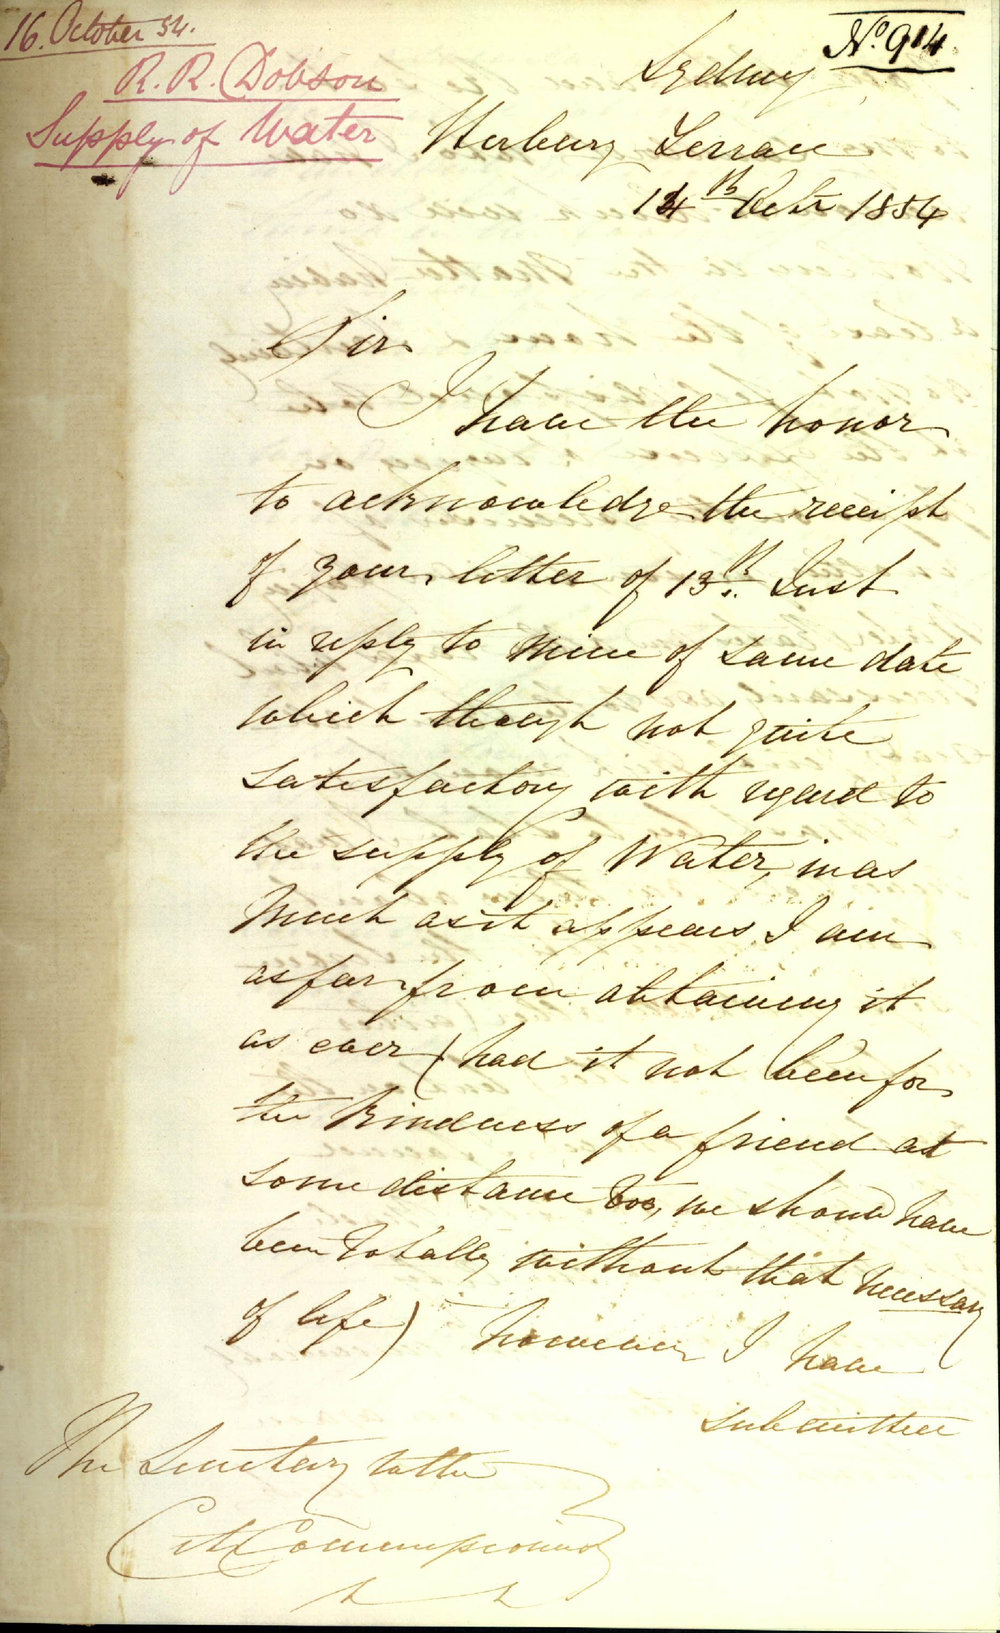 16. October 54.
R. R. Dobson
Supply of Water
No. 914
Sydney
Terrace
14th Octr 1854
Sir
I have the honor
to acknowledge the receipt
of your letter of 13th. Inst
in reply to mine of same date
which though not quite
satisfactory with regard to
the supply of Water, in as
much as it appears I am
as far from obtaining it
as ever (had it not been for
the kindness of a friend at
some distance too, we should have
been totally without that necessary
of life) however I have
submitted
The Secretary to the
City Commissioners